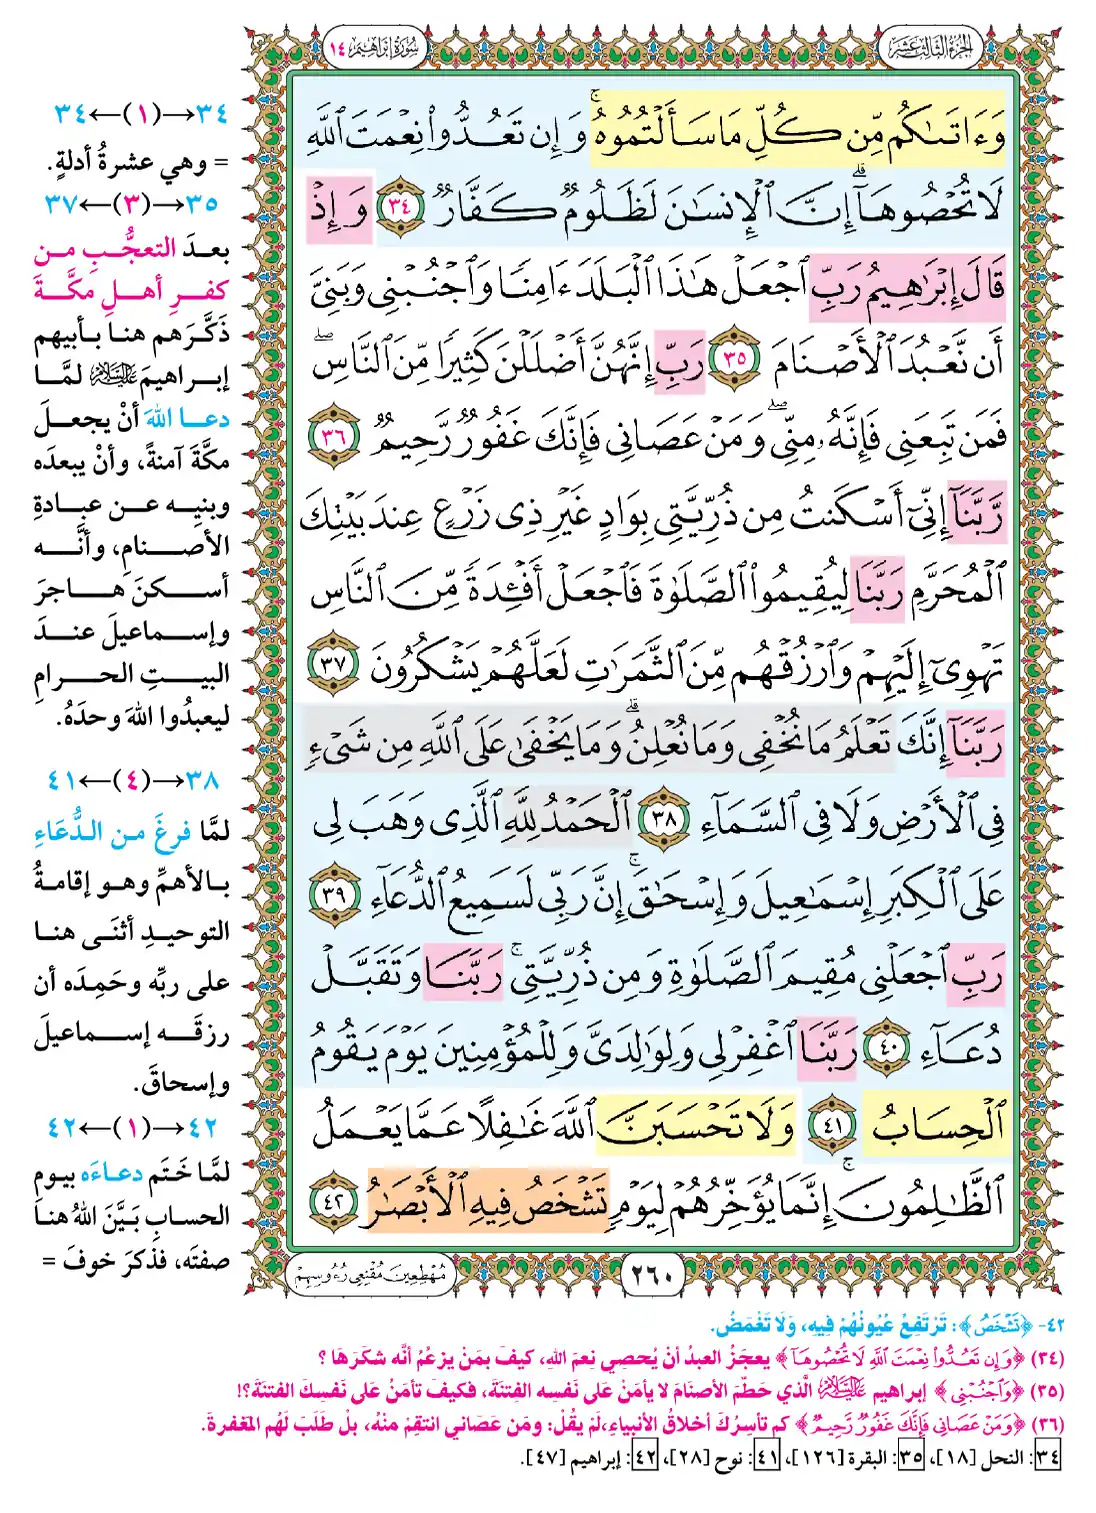 الجزء الثالث عشر
سورة إبراهيم ١٤
وَءَاتَىٰكُم مِّن كُلِّ مَا سَأَلْتُمُوهُ ۚ وَإِن تَعُدُّوا۟ نِعْمَتَ ٱللَّهِ
لَا تُحْصُوهَآ ۗ إِنَّ ٱلْإِنسَٰنَ لَظَلُومٌ كَفَّارٌ ٣٤ وَإِذْ
قَالَ إِبْرَٰهِيمُ رَبِّ ٱجْعَلْ هَٰذَا ٱلْبَلَدَ ءَامِنًا وَٱجْنُبْنِى وَبَنِىَّ
أَن نَّعْبُدَ ٱلْأَصْنَامَ ٣٥ رَبِّ إِنَّهُنَّ أَضْلَلْنَ كَثِيرًا مِّنَ ٱلنَّاسِ ۖ
فَمَن تَبِعَنِى فَإِنَّهُۥ مِنِّى ۖ وَمَنْ عَصَانِى فَإِنَّكَ غَفُورٌ رَّحِيمٌ ٣٦
رَّبَّنَآ إِنِّىٓ أَسْكَنتُ مِن ذُرِّيَّتِى بِوَادٍ غَيْرِ ذِى زَرْعٍ عِندَ بَيْتِكَ
ٱلْمُحَرَّمِ رَبَّنَا لِيُقِيمُوا۟ ٱلصَّلَوٰةَ فَٱجْعَلْ أَفْـِٔدَةً مِّنَ ٱلنَّاسِ
تَهْوِىٓ إِلَيْهِمْ وَٱرْزُقْهُم مِّنَ ٱلثَّمَرَٰتِ لَعَلَّهُمْ يَشْكُرُونَ ٣٧
رَبَّنَآ إِنَّكَ تَعْلَمُ مَا نُخْفِى وَمَا نُعْلِنُ ۗ وَمَا يَخْفَىٰ عَلَى ٱللَّهِ مِن شَىْءٍ
فِى ٱلْأَرْضِ وَلَا فِى ٱلسَّمَآءِ ٣٨ ٱلْحَمْدُ لِلَّهِ ٱلَّذِى وَهَبَ لِى
عَلَى ٱلْكِبَرِ إِسْمَٰعِيلَ وَإِسْحَٰقَ ۚ إِنَّ رَبِّى لَسَمِيعُ ٱلدُّعَآءِ ٣٩
رَبِّ ٱجْعَلْنِى مُقِيمَ ٱلصَّلَوٰةِ وَمِن ذُرِّيَّتِى ۚ رَبَّنَا وَتَقَبَّلْ
دُعَآءِ ٤٠ رَبَّنَا ٱغْفِرْ لِى وَلِوَٰلِدَىَّ وَلِلْمُؤْمِنِينَ يَوْمَ يَقُومُ
ٱلْحِسَابُ ٤١ وَلَا تَحْسَبَنَّ ٱللَّهَ غَٰفِلًا عَمَّا يَعْمَلُ
ٱلظَّٰلِمُونَ ۚ إِنَّمَا يُؤَخِّرُهُمْ لِيَوْمٍ تَشْخَصُ فِيهِ ٱلْأَبْصَٰرُ ٤٢
مُهْطِعِينَ مُقْنِعِى رُءُوسِهِمْ
٢٦٠
٣٤→(١)←٣٤
= وهي عشرةُ أدلةٍ.
٣٥→(٣)←٣٧
بعدَ التعجُّبِ من
كفرِ أهلِ مكَّةَ
ذَكَّرَهم هنا بأبيهم
إبراهيمَ عليه السلام لمَّا
دعا اللهَ أنْ يجعلَ
مكَّةَ آمنةً، وأنْ يبعدَه
وبنيِه عن عبادةِ
الأصنامِ، وأنَّه
أسكنَ هاجرَ
وإسماعيلَ عندَ
البيتِ الحرامِ
ليعبدُوا اللهَ وحدَهُ.
٣٨→(٤)←٤١
لمَّا فرغَ من الدُّعَاءِ
بالأهمِّ وهو إقامةُ
التوحيدِ أثنَى هنا
على ربِّه وحَمِدَه أن
رزقَه إسماعيلَ
وإسحاقَ.
٤٢→(١)←٤٢
لمَّا خَتَم دعاءَه بيومِ
الحسابِ بَيَّنَ اللهُ هنا
صفتَه، فذكرَ خوفَ =
٤٢- ﴿تَشْخَصُ﴾: تَرْتَفِعُ عُيُونُهُمْ فِيهِ، وَلَا تَغْمَضُ.
(٣٤) ﴿وَإِن تَعُدُّوا۟ نِعْمَتَ ٱللَّهِ لَا تُحْصُوهَآ﴾ يعجَزُ العبدُ أنْ يُحصِي نِعمَ اللهِ، كيفَ بمَنْ يزعُمُ أنَّه شكَرَهَا ؟
(٣٥) ﴿وَٱجْنُبْنِى﴾ إبراهيم عليه السلام الَّذي حَطَّمَ الأصنَامَ لا يأمَنُ عَلى نَفْسِه الفِتنَةَ، فكيفَ تأمَنُ عَلى نَفْسِكَ الفتنَةَ؟!
(٣٦) ﴿وَمَنْ عَصَانِى فَإِنَّكَ غَفُورٌ رَّحِيمٌ﴾ كم تأسِرُكَ أخلاقُ الأنبياءِ، لَمْ يقُلْ: ومَن عَصَاني انتقِمْ منْهُ، بلْ طَلَبَ لَهُم المغفرةَ.
٣٤: النحل [١٨]، ٣٥: البقرة [١٢٦]، ٤١: نوح [٢٨]، ٤٢: إبراهيم [٤٧].